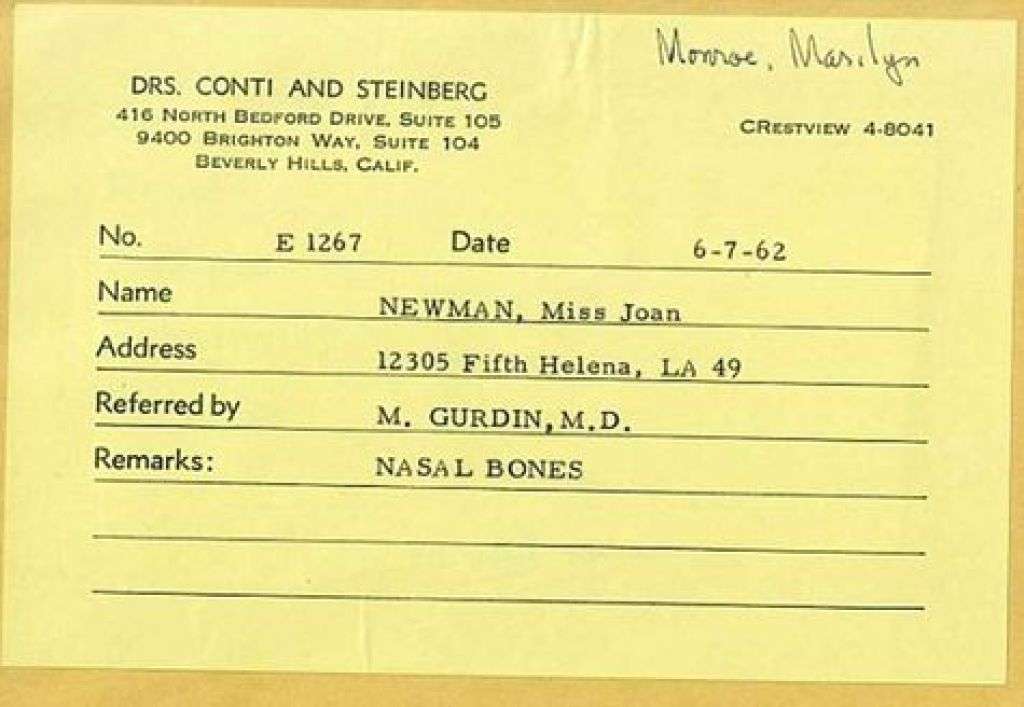 Monroe, Marilyn
DRS. CONTI AND STEINBERG
416 NORTH BEDFORD DRIVE, SUITE 105
9400 BRIGHTON WAY, SUITE 104
BEVERLY HILLS, CALIF.
CRESTVIEW 4-8041
No. E 1267 Date 6-7-62
Name NEWMAN, Miss Joan
Address 12305 Fifth Helena, LA 49
Referred by M. GURDIN, M.D.
Remarks: NASAL BONES